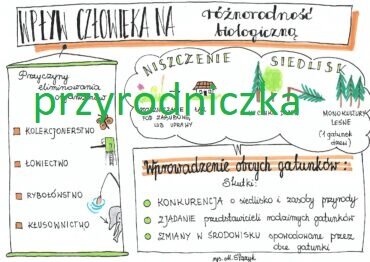 WPŁYW CZŁOWIEKA NA
różnorodność
biologiczną
Przyczyny
eliminowania
NISZCZENIE SIEDLISK
przyrodniczka
KOLEKCJONERSTWO
ŁOWIECTWO
RYBOŁÓWSTWO
KŁUSOWNICTWO
POD ZABUDOWĘ
LUB UPRAWY
MONOKULTURY
LEŚNE
(1 gatunek
drzew)
Wprowadzenie obcych gatunków:
Skutki:
KONKURENCJA o siedlisko i zasoby przyrody
ZJADANIE przedstawicieli rodzimych gatunków
ZMIANY W ŚRODOWISKU spowodowane przez
obce gatunki